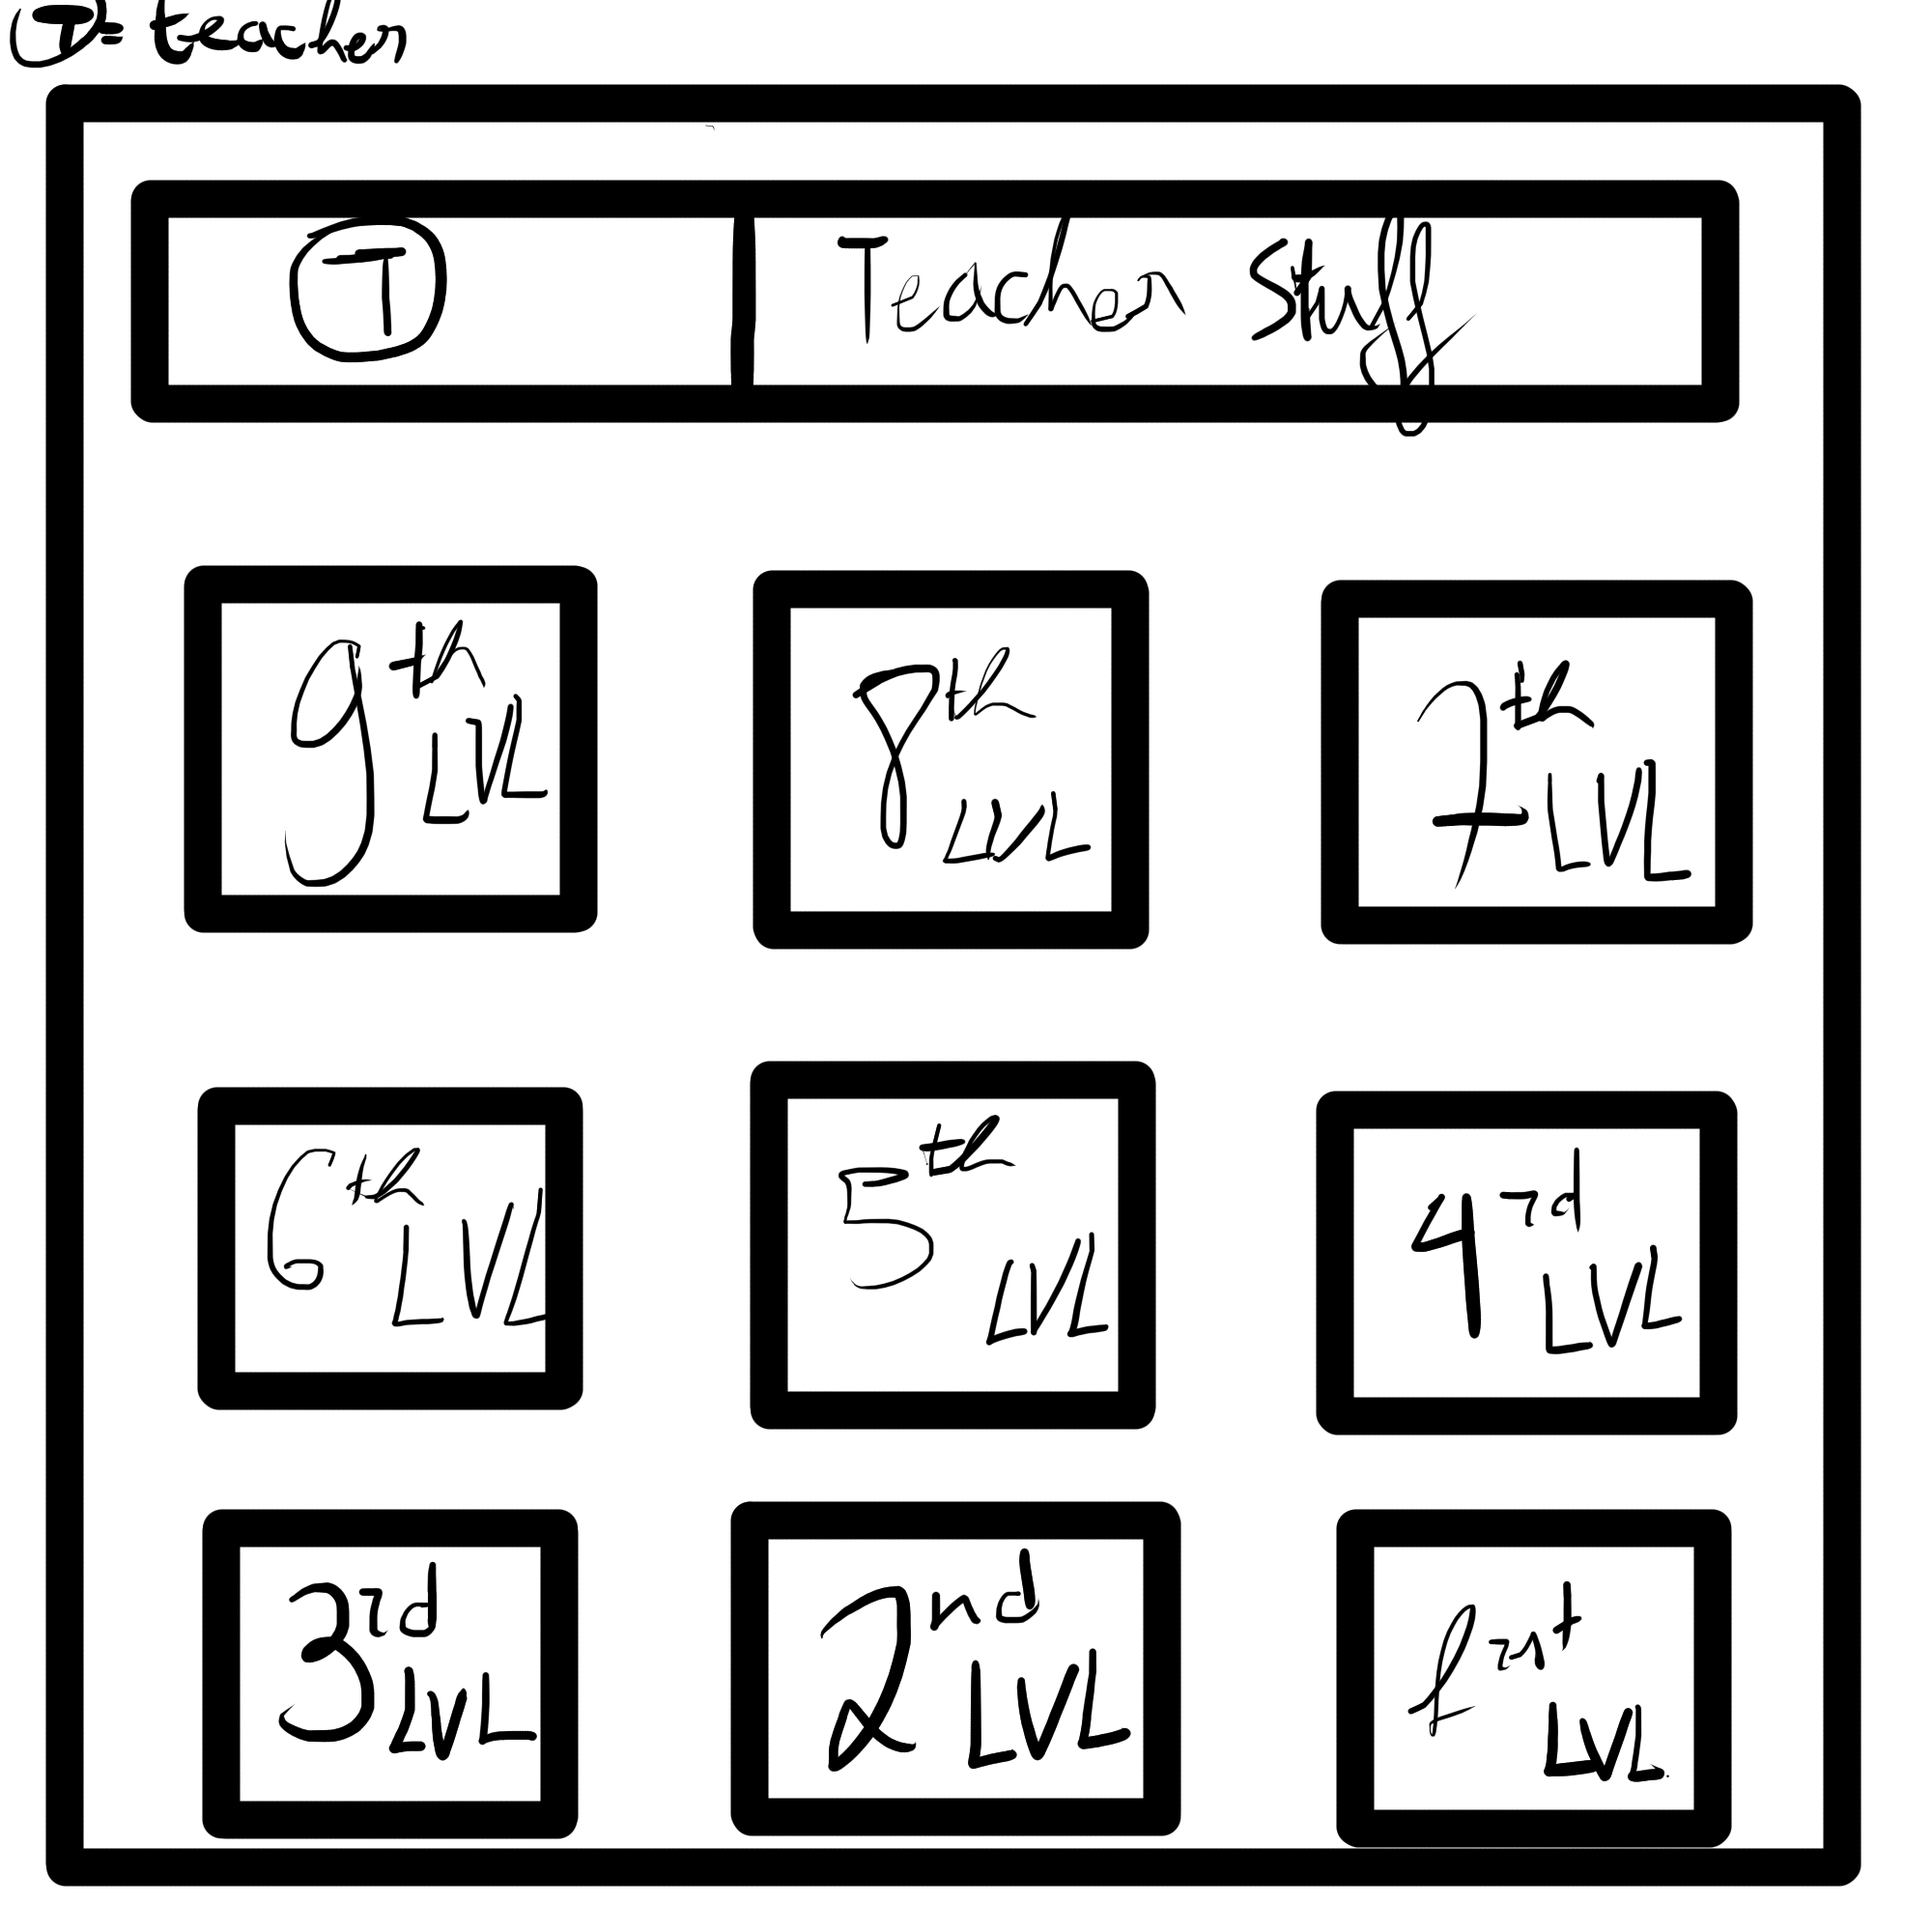 T = teacher
T Teacher Stuff
9th LVL
8th LVL
7th LVL
6th LVL
5th LVL
4rd LVL
3rd LVL
2nd LVL
first LVL